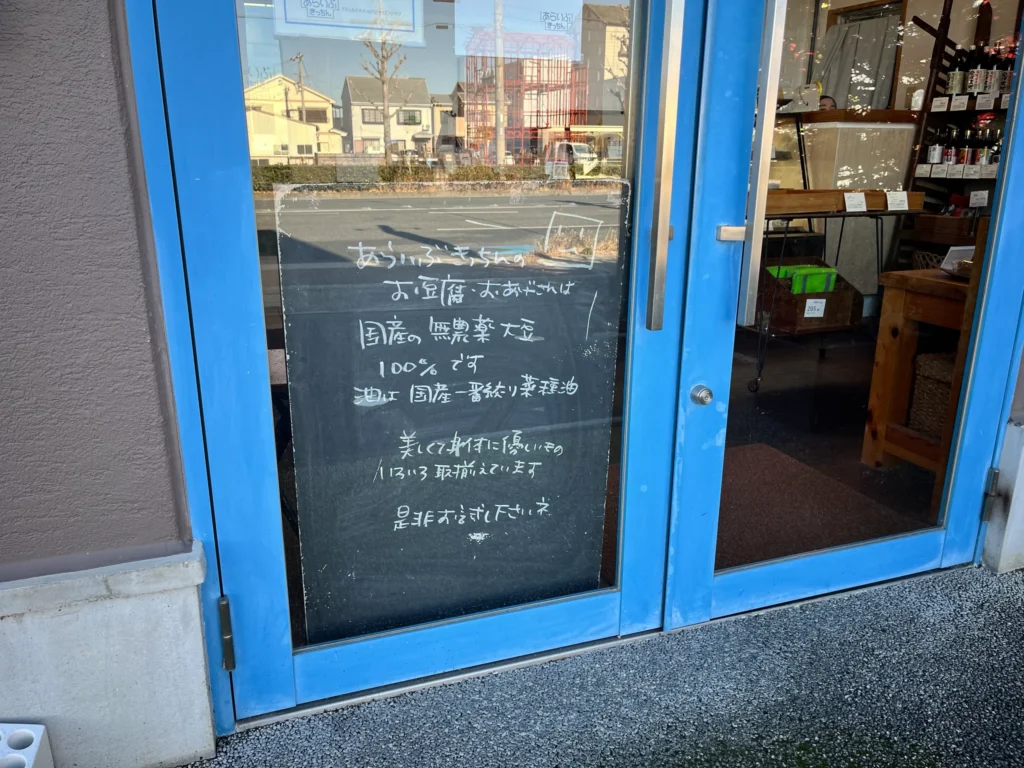 あらいぶ
きっちん
あらいぶ
きっちん
あらいぶきっちんの
お豆腐・おあげさんは
国産の無農薬大豆
100%です
油は国産一番絞り菜種油
美しくて身体に優しいもの
いろいろ取揃えています
是非お試し下さいネ